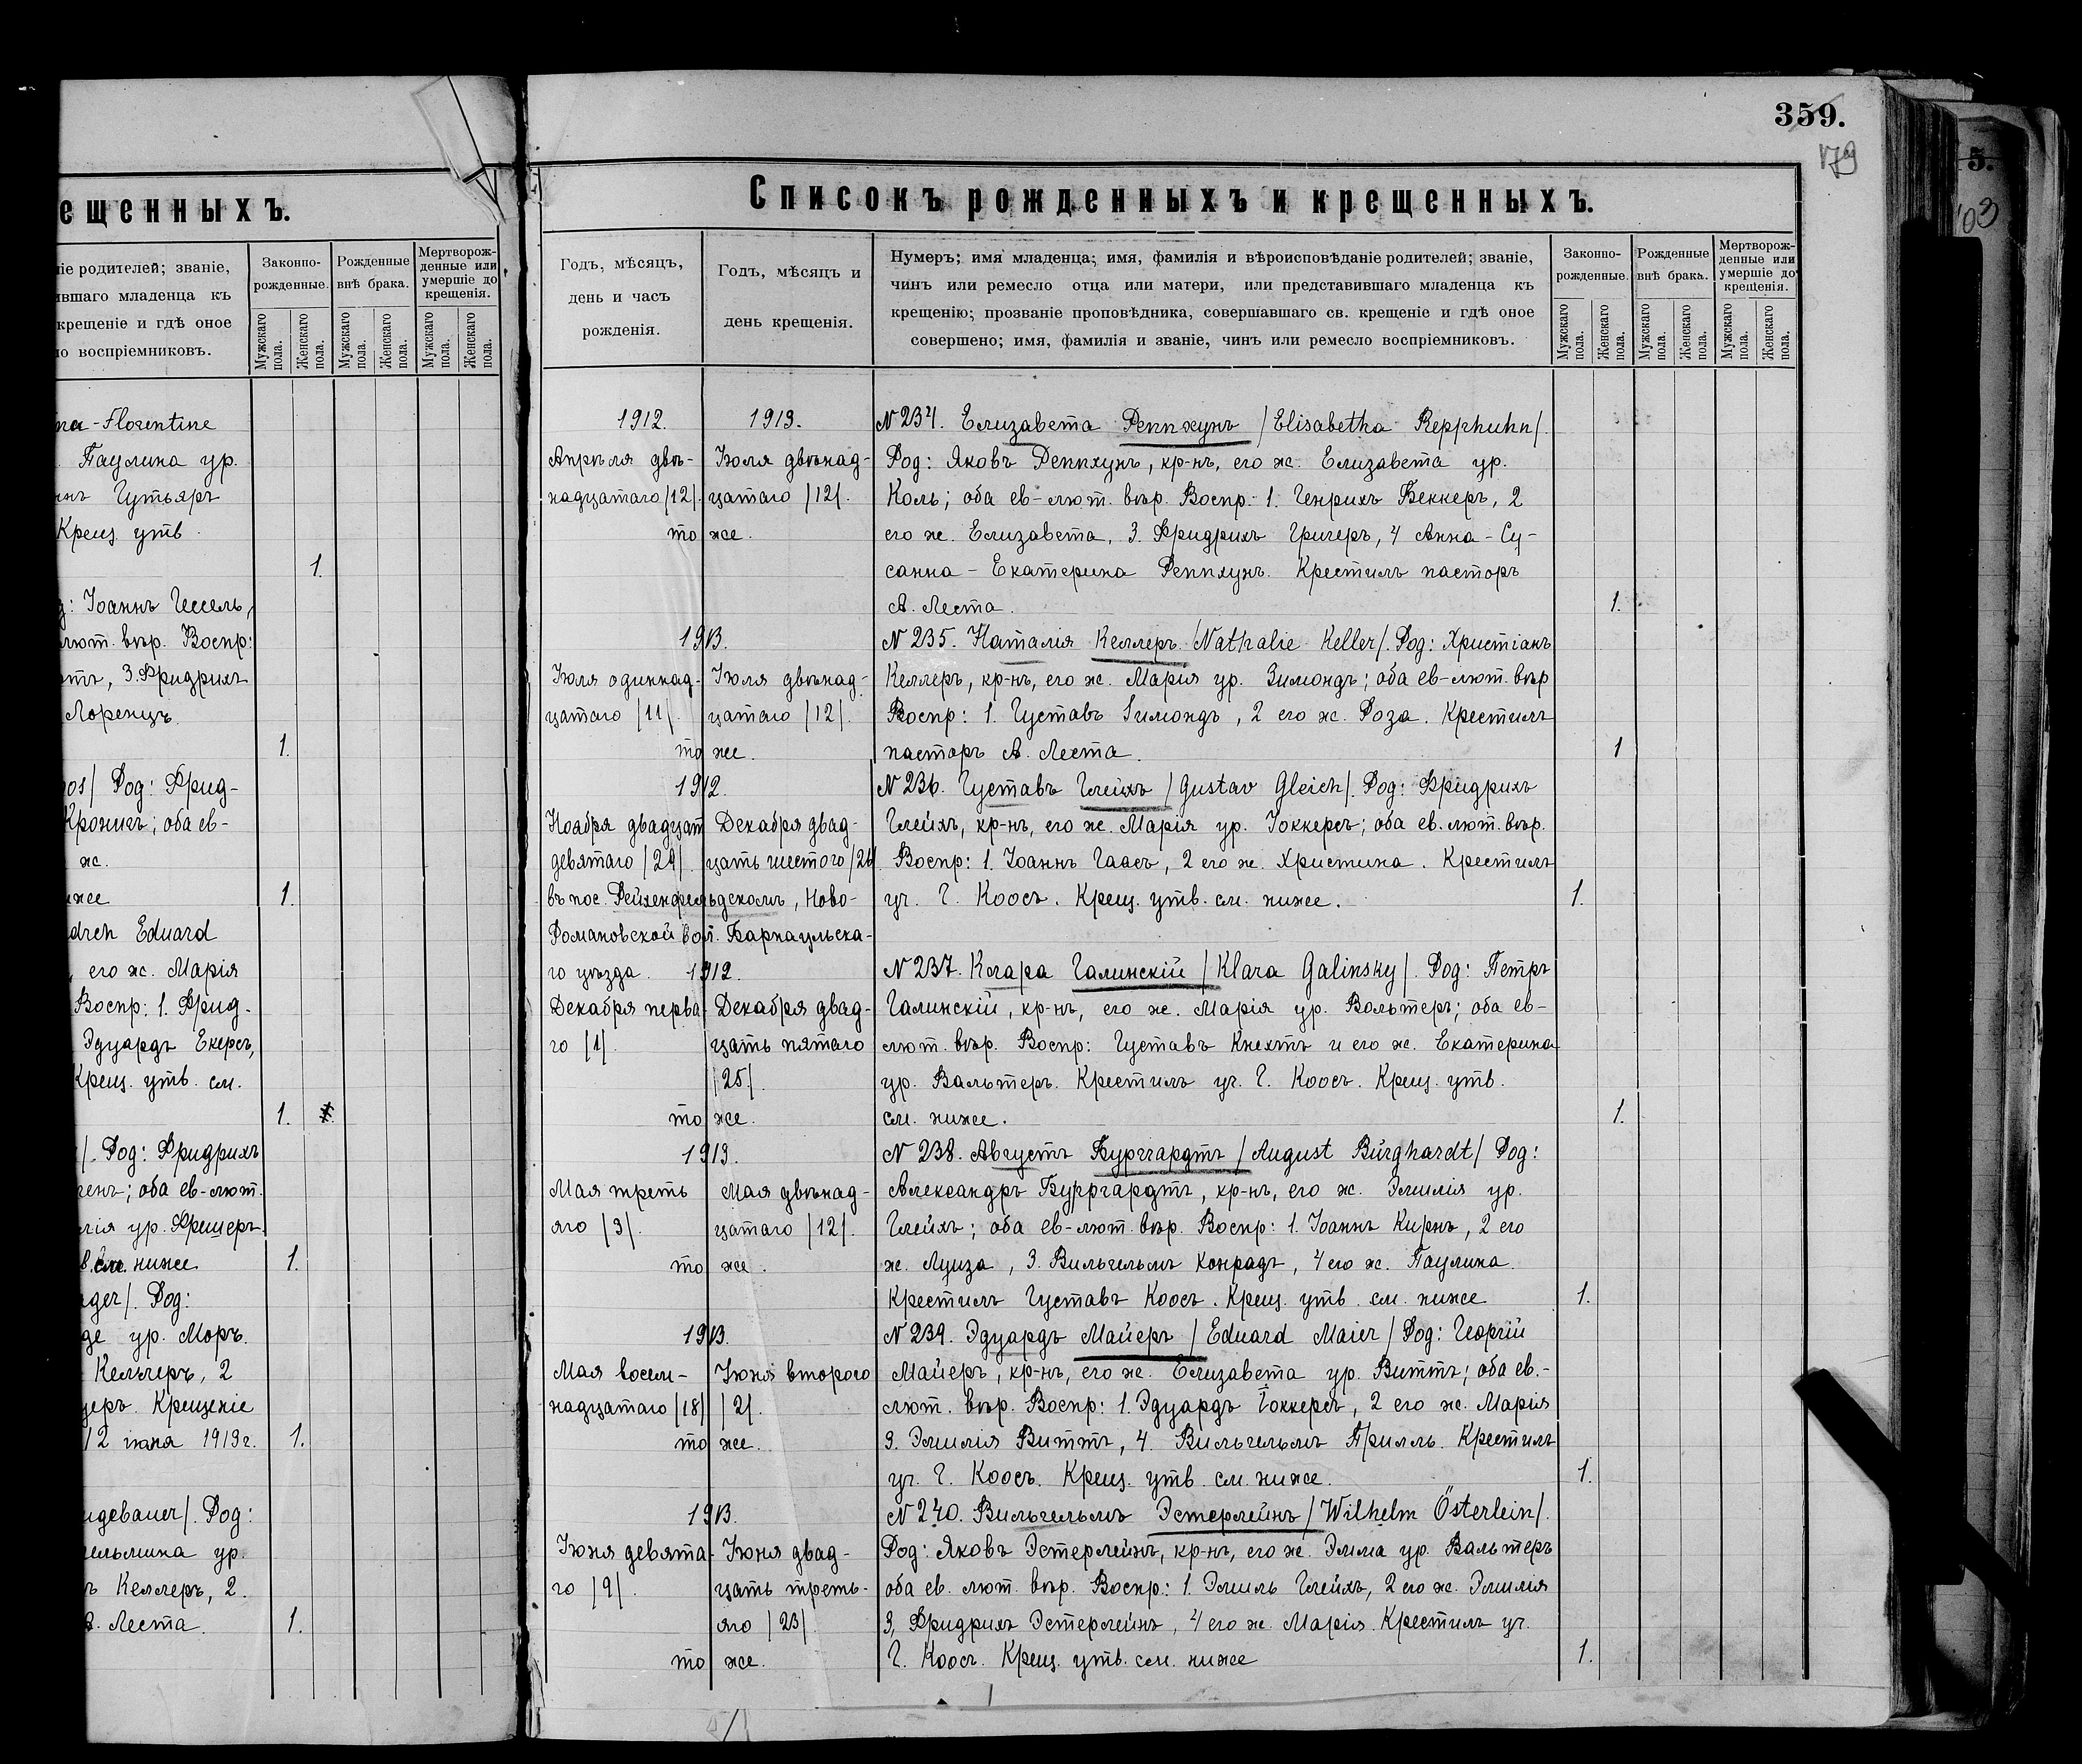 359.
179
5.
103
ещенныхъ.
ніе родителей; званіе,
ившаго младенца къ
крещеніе и гдѣ оное
о воспріемниковъ.
Законно-
рожденные.
Рожденные
внѣ брака.
Мертворож-
денные или
умершіе до
крещенія.
Мужскаго пола.
Женскаго пола.
Мужскаго пола.
Женскаго пола.
Мужскаго пола.
Женскаго пола.
na-Florentine
Паулина ур.
нъ Гутьяръ
Крещ. утв.
1.
д: Іоаннъ Гессель,
лют. вѣр. Воспр:
тъ, 3. Фридрихъ
Лоренцъ.
1.
ros/ Род: Фрид-
Кронигъ; оба ев-
ж.
иже 1.
drch Eduard
его ж. Марія
Воспр: 1. Фрид-
Эдуардъ Екерсъ,
Крещ. утв. см.
1.
/. Род: Фридрихъ
генъ; оба ев-лют.
лія ур. Фришеръ.
в. см. ниже 1.
ger/. Род:
де ур. Моръ.
Келлеръ, 2
церъ. Крещеніе
12 іюня 1913г. 1.
ugebauer/. Род:
ельмина ур.
ъ Келлеръ, 2.
А. Леста. 1.
Списокъ рожденныхъ и крещенныхъ.
Годъ, мѣсяцъ,
день и часъ
рожденія.
Годъ, мѣсяцъ и
день крещенія.
Нумеръ; имя младенца; имя, фамилія и вѣроисповѣданіе родителей; званіе,
чинъ или ремесло отца или матери, или представившаго младенца къ
крещенію; прозваніе проповѣдника, совершавшаго св. крещеніе и гдѣ оное
совершено; имя, фамилія и званіе, чинъ или ремесло воспріемниковъ.
Законно-
рожденные.
Рожденные
внѣ брака.
Мертворож-
денные или
умершіе до
крещенія.
Мужскаго пола.
Женскаго пола.
Мужскаго пола.
Женскаго пола.
Мужскаго пола.
Женскаго пола.
1912. 1913. N 234. Елизавета Реппхунъ /Elisabetha Repphuhn/.
Апрѣля двѣ- Іюля двѣнад- Род: Яковъ Реппхунъ, кр-нъ, его ж. Елизавета ур.
надцатаго /12/. цатаго /12/. Коль; оба ев-лют. вѣр. Воспр: 1. Генрихъ Беккеръ, 2
то же. его ж. Елизавета, 3. Фридрихъ Григеръ, 4 Анна-Су-
санна-Екатерина Реппхунъ. Крестилъ пасторъ
А. Леста. 1.
1913. N 235. Наталія Келлеръ /Nathalie Keller/. Род: Христіанъ
Іюля одиннад- Іюля двѣнад- Келлеръ, кр-нъ, его ж. Марія ур. Зимондъ; оба ев-лют. вѣр
цатаго /11/. цатаго /12/. Воспр: 1. Густавъ Зимондъ, 2 его ж. Роза. Крестилъ
то же. пасторъ А. Леста. 1
1912. N 236. Густавъ Глейхъ /Gustav Gleich/. Род: Фридрихъ
Ноября двадцат Декабря двад- Глейхъ, кр-нъ, его ж. Марія ур. Іоккерсъ; оба ев. лют. вѣр.
девятаго /29/. цать шестого /26/ Воспр: 1. Іоаннъ Гаасъ, 2 его ж. Христина. Крестилъ
въ пос. Рейхенфельдскомъ, Ново- уч. Г. Коосъ. Крещ. утв. см. ниже. 1.
Романовской вол. Барнаульска-
го уѣзда. 1912. N 237. Клара Галинскій /Klara Galinsky/. Род: Петръ
Декабря перва- Декабря двад- Галинскій, кр-нъ, его ж. Марія ур. Вальтеръ; оба ев-
го /1/. цать пятаго лют. вѣр. Воспр: Густавъ Кнехтъ и его ж. Екатерина
/25/. ур. Вальтеръ. Крестилъ уч. Г. Коосъ. Крещ. утв.
то же. см. ниже. 1.
1913. N 238. Августъ Бурггардтъ /August Burghardt/ Род:
Мая треть Мая двѣнад- Александръ Бурггардтъ, кр-нъ, его ж. Эмилія ур.
яго /3/. цатаго /12/. Глейхъ; оба ев-лют. вѣр. Воспр: 1. Іоаннъ Кирнъ, 2 его
то же. ж. Луиза, 3. Вильгельмъ Конрадъ, 4 его ж. Паулина.
Крестилъ Густавъ Коосъ. Крещ. утв. см. ниже 1.
1913. N 239. Эдуардъ Майеръ /Eduard Maier/ Род: Георгій
Мая восем- Іюня второго Майеръ, кр-нъ, его ж. Елизавета ур. Виттъ; оба ев.-
надцатаго /18/ /2/. лют. вѣр. Воспр: 1. Эдуардъ Іоккерсъ, 2 его ж. Марія
то же. 3. Эмилія Виттъ, 4. Вильгельмъ Прилль. Крестилъ
уч. Г. Коосъ. Крещ. утв. см. ниже. 1.
1913. N 240. Вильгельмъ Эстерлейнъ /Wilhelm Österlein/.
Іюня девята- Іюня двад- Род: Яковъ Эстерлейнъ, кр-нъ, его ж. Эмма ур. Вальтеръ
го /9/. цать треть- оба ев. лют. вѣр. Воспр.: 1. Эмиль Глейхъ, 2 его ж. Эмилія
яго /23/. 3, Фридрихъ Эстерлейнъ, 4 его ж. Марія. Крестилъ уч.
то же. Г. Коосъ. Крещ. утв. см. ниже 1.